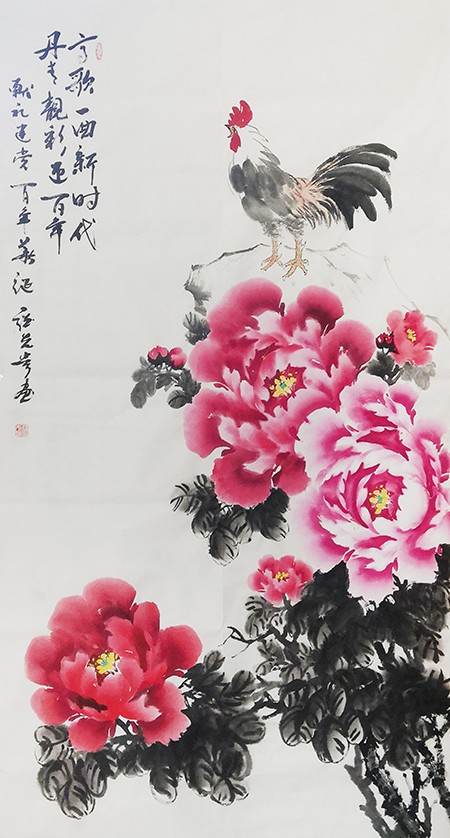 高歌一曲新时代
丹青靓彩迎百年
献礼建党百年华诞